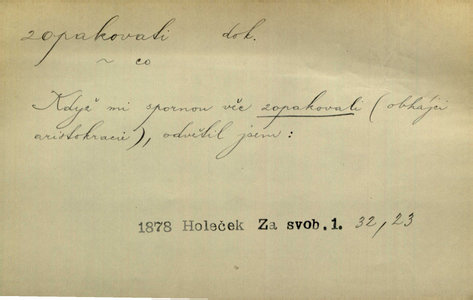 zopakovati dok.
~ co
Když mi spornou věc zopakovali (obhájci
aristokracie), odvětil jsem:
1878 Holeček Za svob. 1. 32, 23